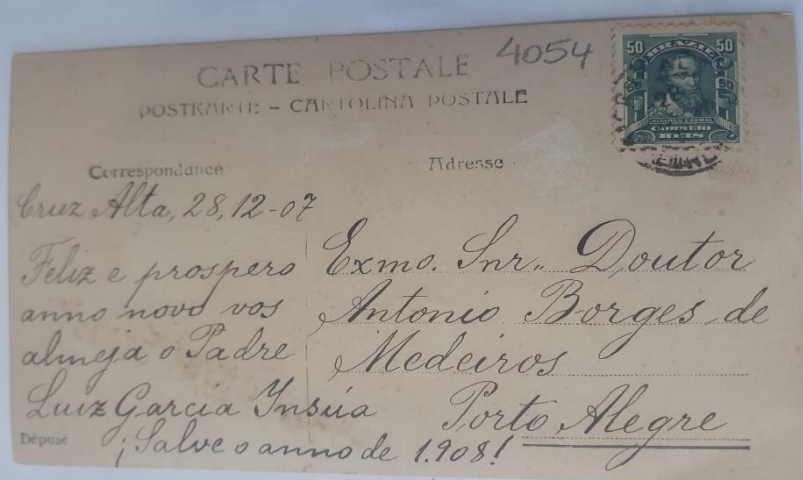 CARTE POSTALE
4054
POSTKARTE - CARTOLINA POSTALE
50 BRAZIL 50
50 50
ALVARES CABRAL
CORREIO
REIS
Correspondance
Adresse
Cruz Alta, 28, 12-07
Feliz e prospero
anno novo vos
almeja o Padre
Luiz Garcia Insúa
¡Salve o anno de 1.908!
Exmo. Snr. Doutor
Antonio Borges de
Medeiros
Porto Alegre
Déposé